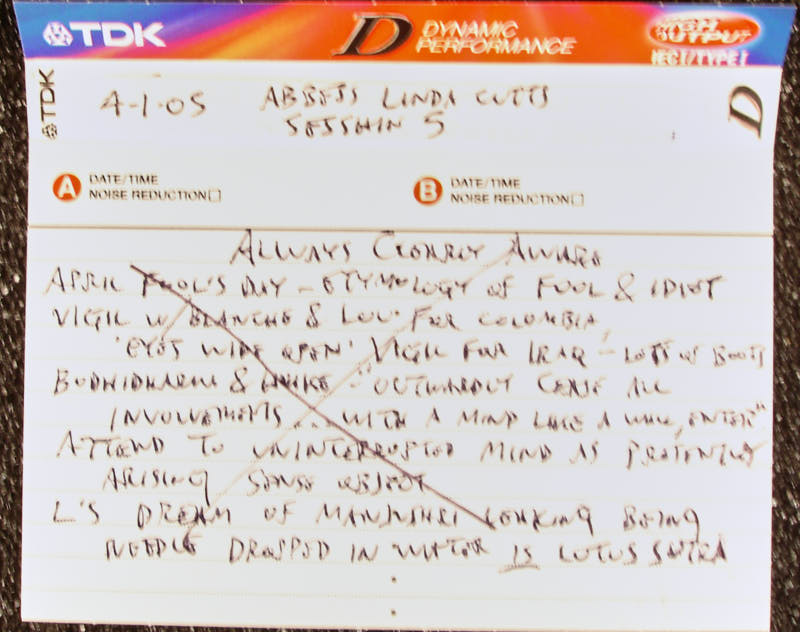 TDK D DYNAMIC PERFORMANCE HIGH OUTPUT IECI/TYPE I
TDK 4-1-05 ABBESS LINDA CUTTS D
SESSHIN 5
A DATE/TIME NOISE REDUCTION B DATE/TIME NOISE REDUCTION
ALWAYS CLEARLY AWARE
APRIL FOOL'S DAY - ETYMOLOGY OF FOOL & IDIOT
VIGIL W/ BLANCHE & LOU FOR COLOMBIA
'EYES WIDE OPEN' VIGIL FOR IRAQ - LOTS OF BOOTS
BODHIDHARMA & HUIKE - "OUTWARDLY CEASE ALL
INVOLVEMENTS... WITH A MIND LIKE A WALL, ENTER"
ATTEND TO UNINTERRUPTED MIND AS PRESENTLY
ARISING SENSE OBJECT
L'S DREAM OF MANJUSHRI BEING
NEEDLE DROPPED IN WATER IS LOTUS SUTRA